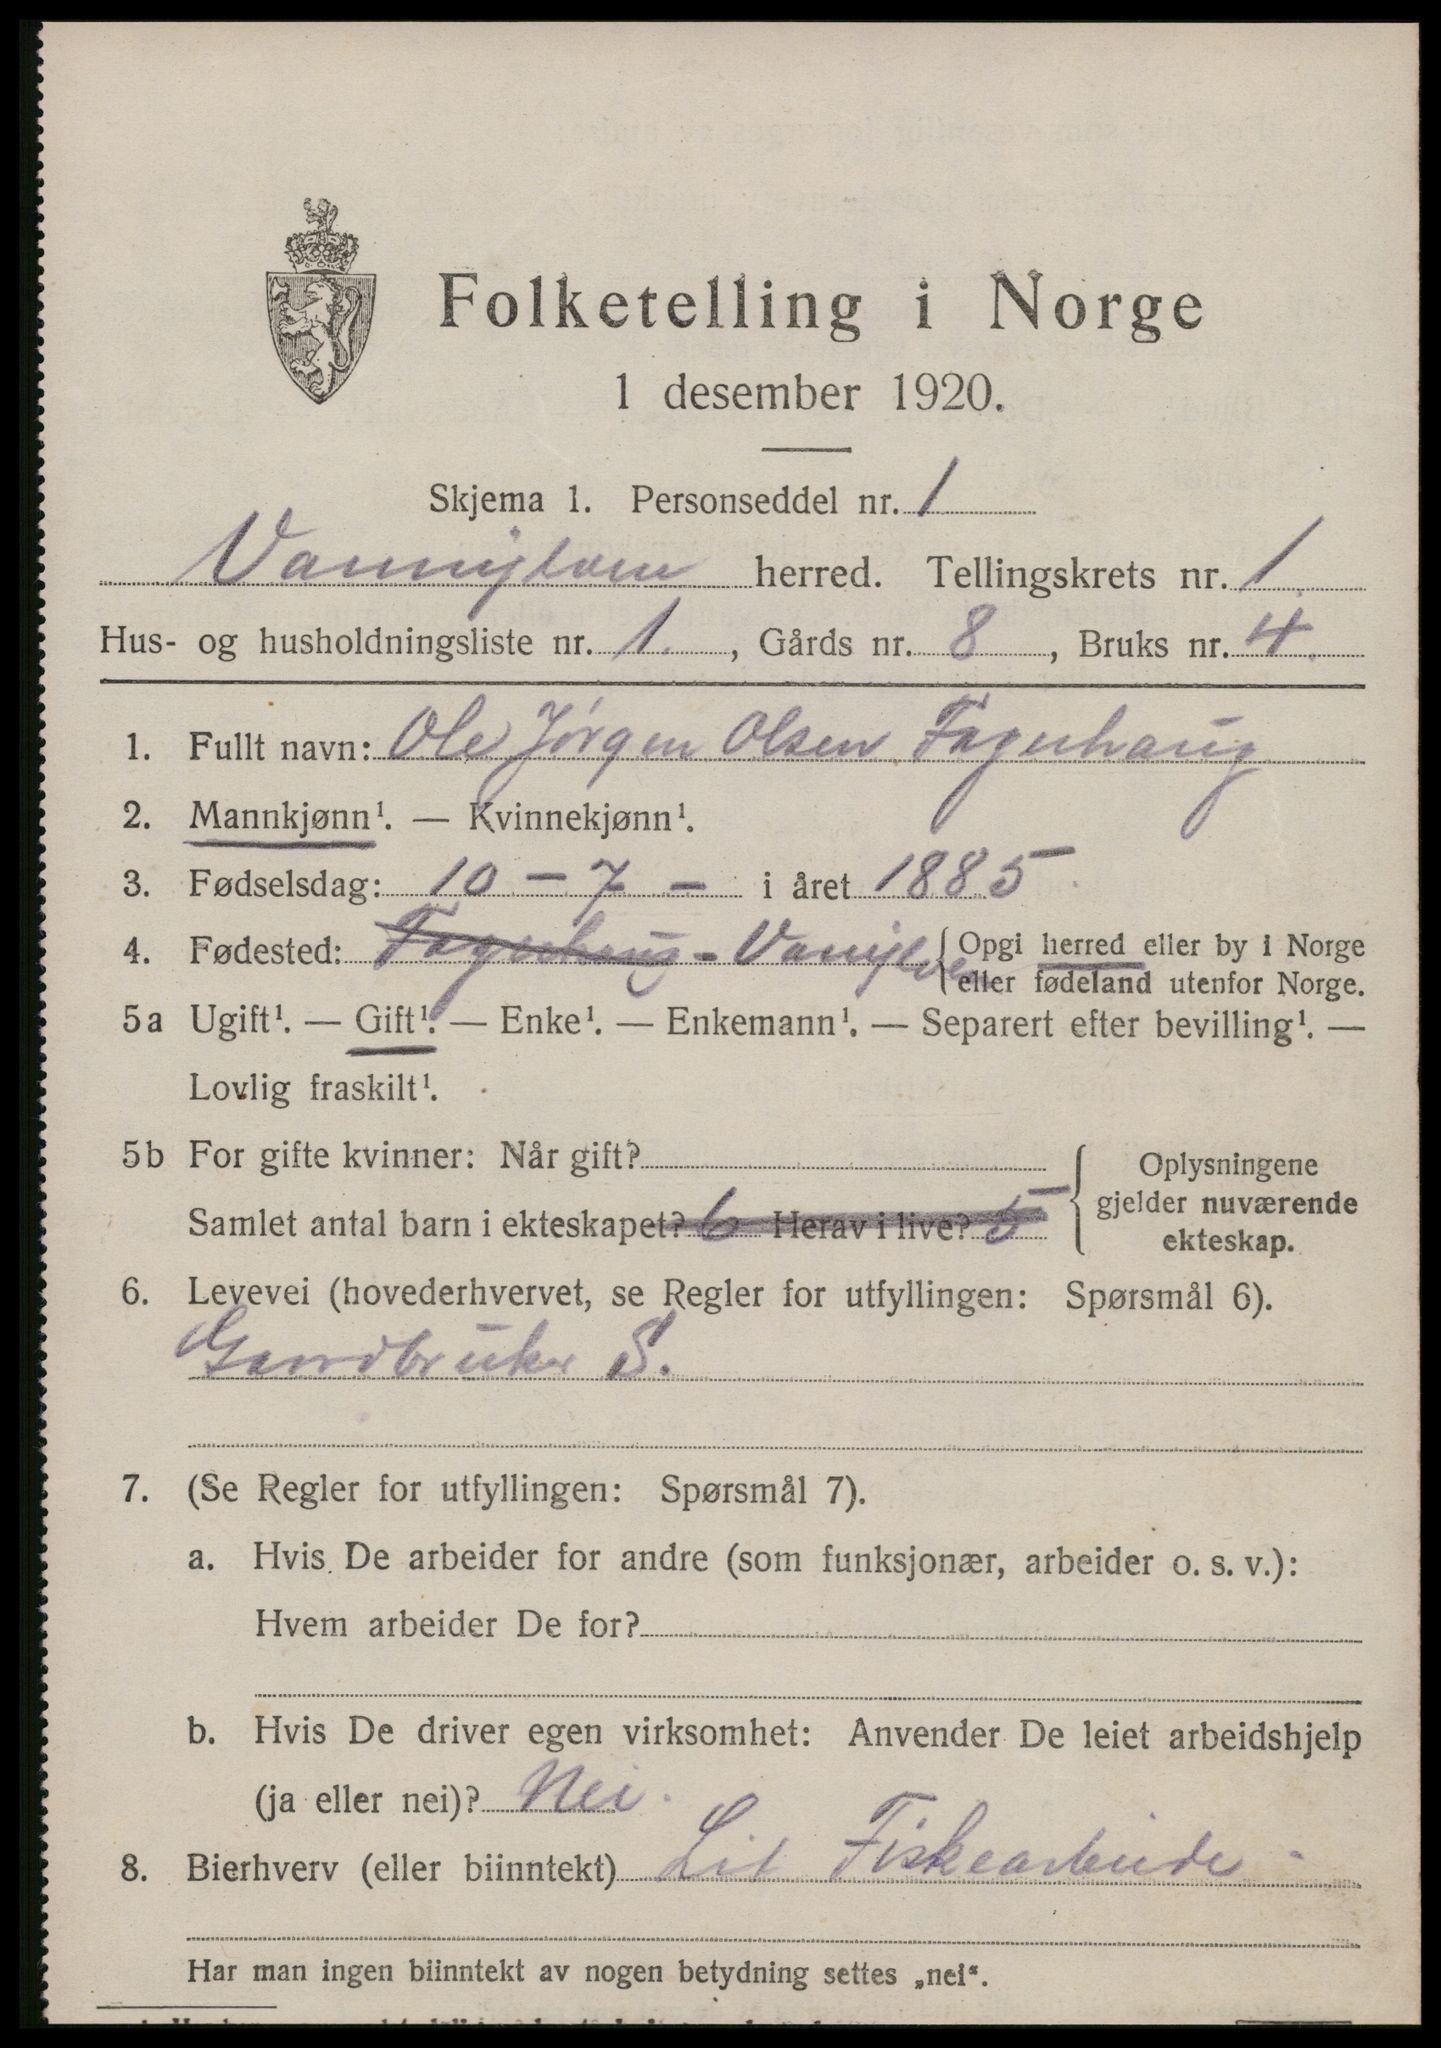 Folketelling i Norge
1 desember 1920.
Skjema 1. Personseddel nr. 1
Vannylven herred. Tellingskrets nr. 1.
Hus- og husholdningsliste nr. 1., Gårds nr. 8, Bruks nr. 4.
1. Fullt navn: Ole Jörgen Olsen Fagerhaug
2. Mannkjønn¹. — Kvinnekjønn¹.
3. Fødselsdag: 10 - 7 - i året 1885
4. Fødested: Fagerhaug - Vanylven { Opgi herred eller by i Norge
eller fødeland utenfor Norge.
5a Ugift¹. — Gift¹. — Enke¹. — Enkemann¹. — Separert efter bevilling¹. —
Lovlig fraskilt¹.
5b For gifte kvinner: Når gift?
Samlet antal barn i ekteskapet? 6 Herav i live? 5
{ Oplysningene
gjelder nuværende
ekteskap.
6. Levevei (hovederhvervet, se Regler for utfyllingen: Spørsmål 6).
Gardbruker S.
7. (Se Regler for utfyllingen: Spørsmål 7).
a. Hvis De arbeider for andre (som funksjonær, arbeider o. s. v.):
Hvem arbeider De for?
b. Hvis De driver egen virksomhet: Anvender De leiet arbeidshjelp
(ja eller nei)? Nei.
8. Bierhverv (eller biinntekt) Lit Fiskearbeide -
Har man ingen biinntekt av nogen betydning settes „nei“.